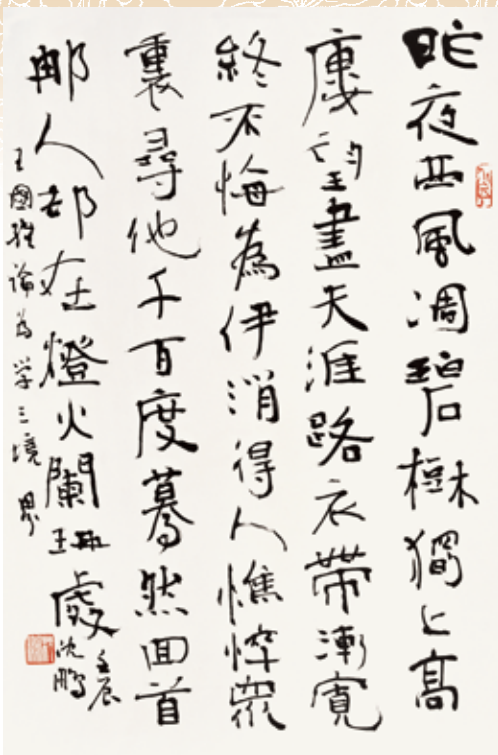 昨夜西風凋碧樹獨上高
廔望盡天涯路衣帶漸寬
終不悔為伊消得人憔悴衆
裏尋他千百度驀然回首
那人都在燈火闌珊處
壬辰
沈鵬
王國維論為学三境界